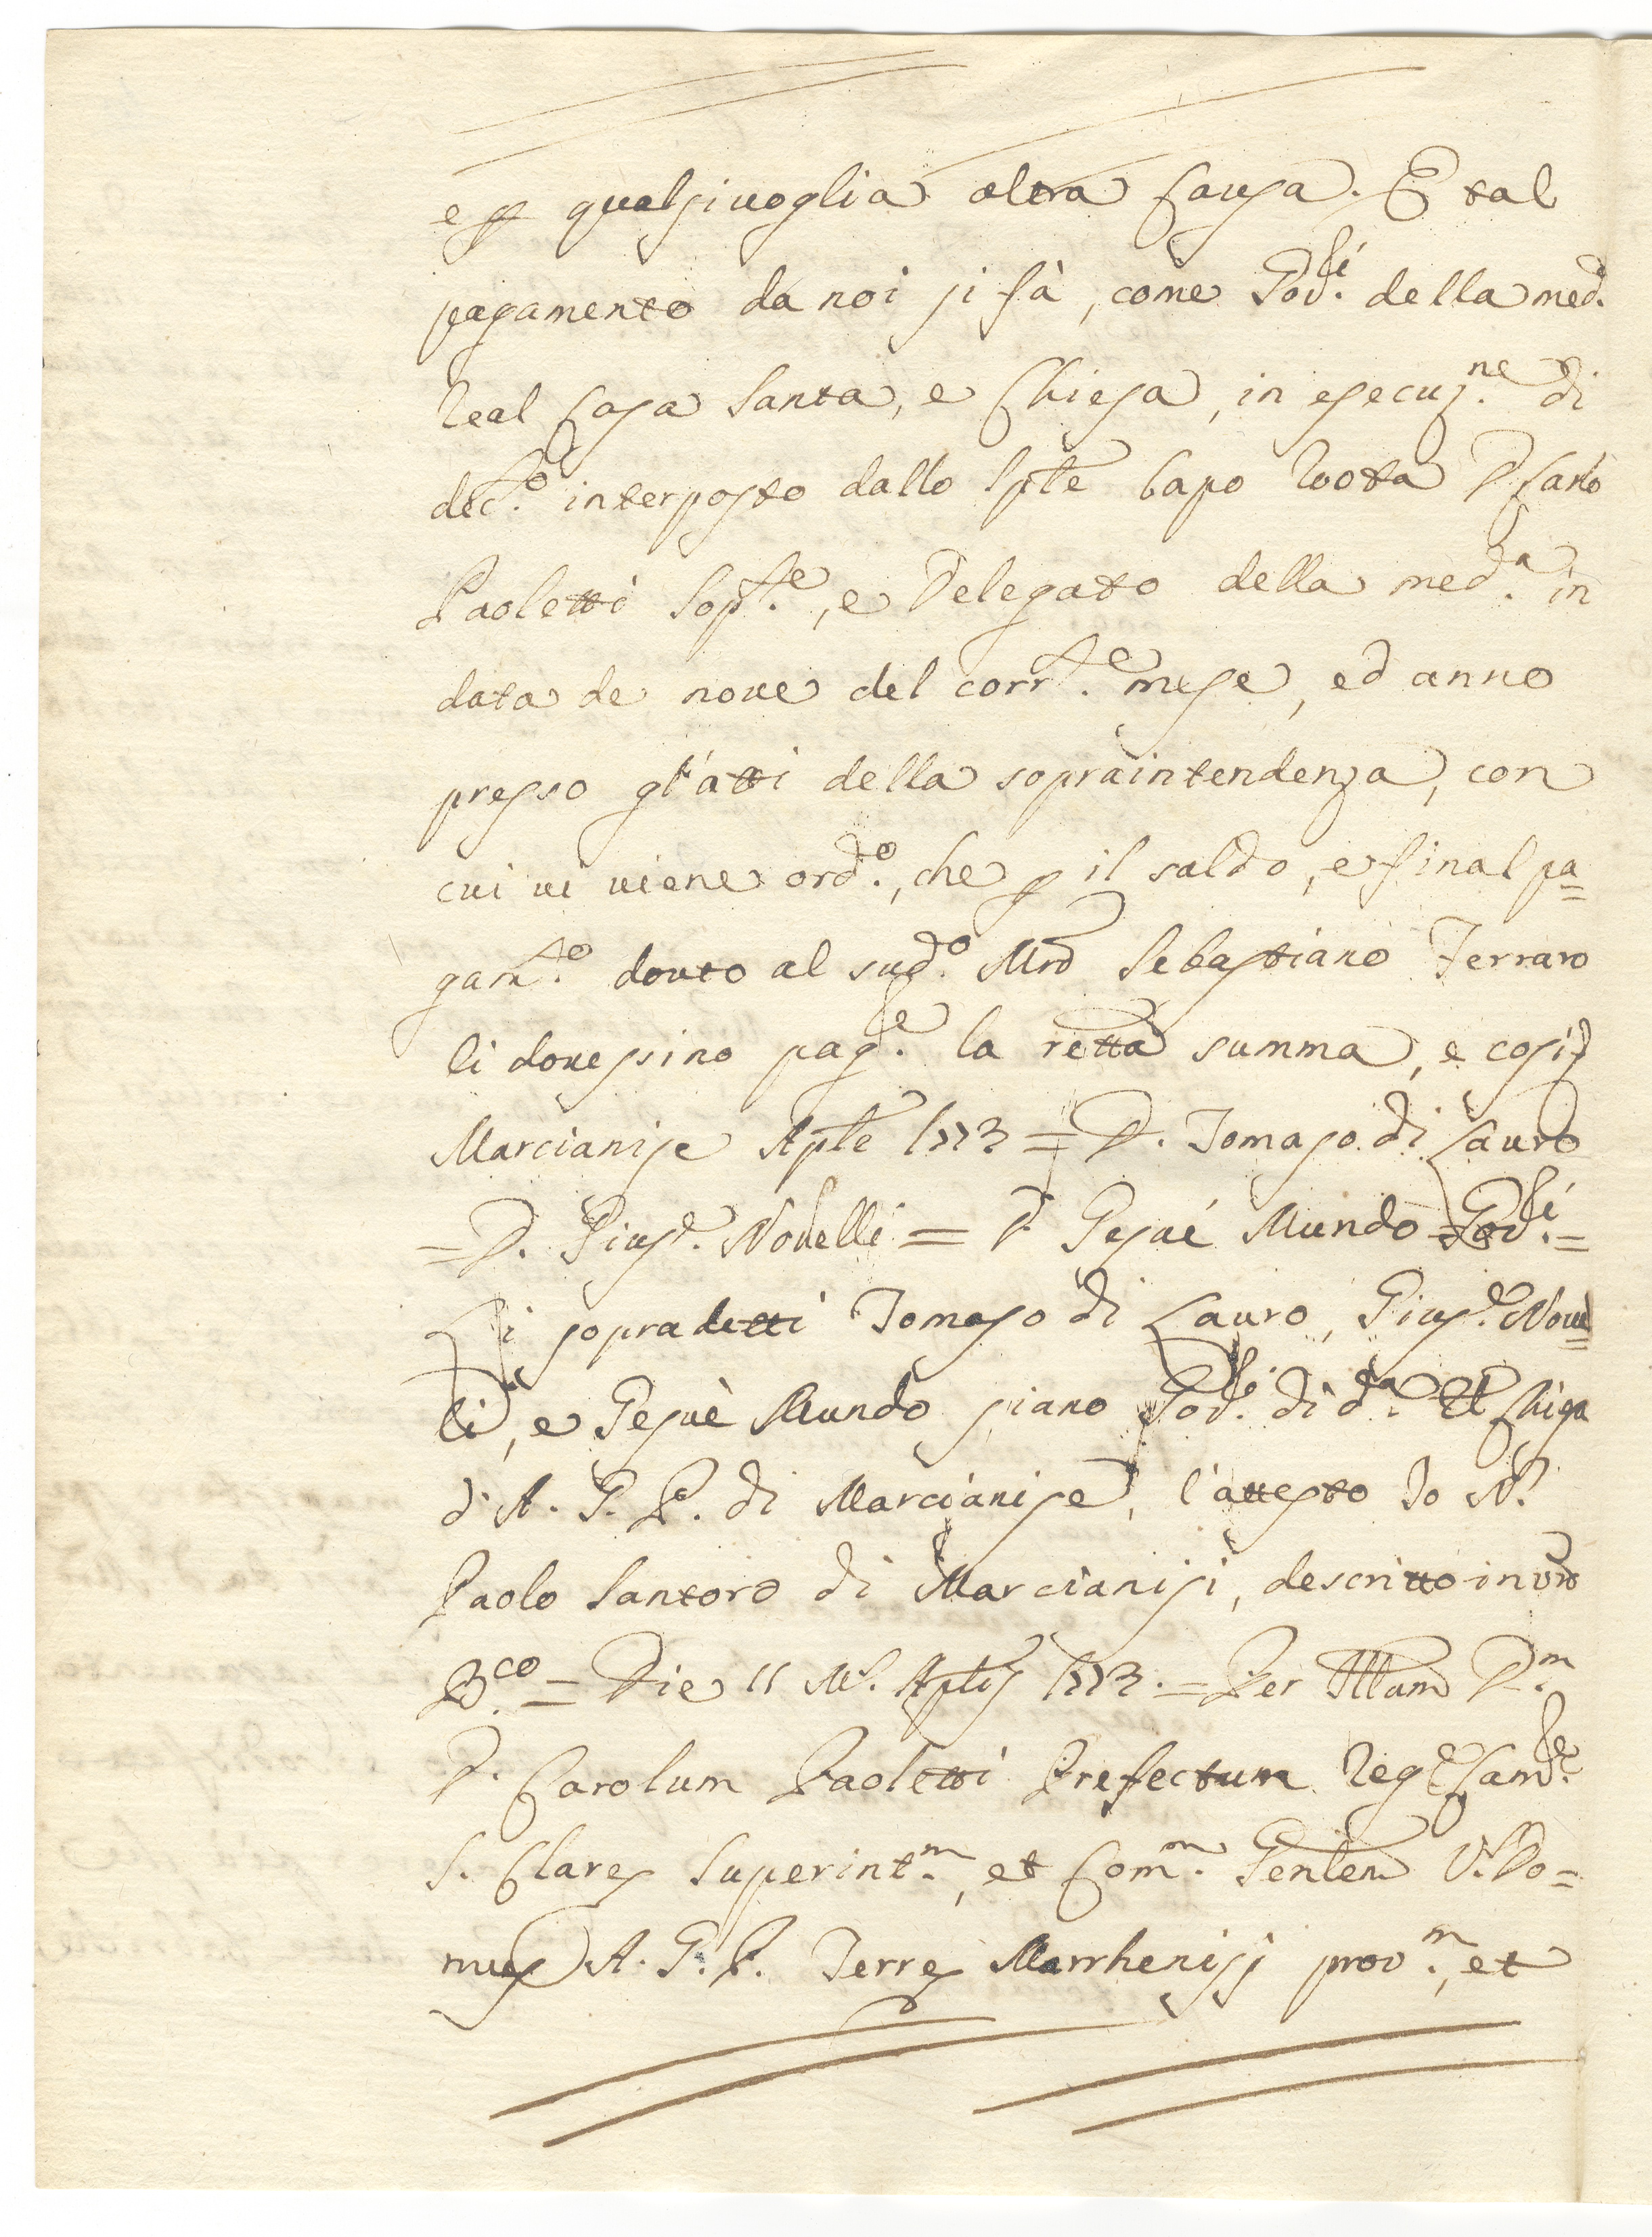 e p qualsivoglia altra causa. E tal
pagamento da noi si fà, come God.ri della med.a
Real Casa Santa, e Chiesa, in esecuz.ne di
dec.to interposto dallo Sp̃le Capo Ruota D. Carlo
Paoletti Sop.te, e Delegato della med.a in
data de nove del corr.te mese, ed anno
presso gl'atti della sopraintendenza, con
cui vi viene ord.o, che p il saldo, e final pa=
gam.to dovto al sud.o Mrõ Sebastiano Ferraro
li dovessino pag.re la retta summa, e così p
Marcianise Aple 1773 = D. Tomaso di Lauro
= D. Gius.e Novelli = D. Gesué Mundo God.ri =
Li sopradetti Tomaso di Lauro, Gius.e Novel=
li, e Gesuè Mundo siano God.ri di d.a Rl Chiesa
d'A. G. P. di Marcianise, l'attesto Io Nr
Paolo Santoro di Marcianisi, descritto in vrõ
B.co = Die 11 M. Aplis 1773. = Per Illum D.m
D. Carolum Paoletti Prefectum Reg.e Cam.re
S. Clares Superint.m, et Com.m Genlem V. Do=
mus A. G. P. Terres Marrhenisij prov.m, et